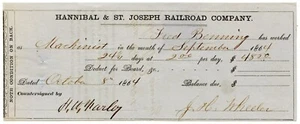 HANNIBAL & ST. JOSEPH RAILROAD COMPANY.
Fred Benning has worked
as Machinist in the month of September 1864
24 days at 200 per day, $
Deduct for Board, &c.,
Dated October 8 1864 Balance due,
Countersigned by
J. H. Wheeler
NOTE CONDITION ON BACK.